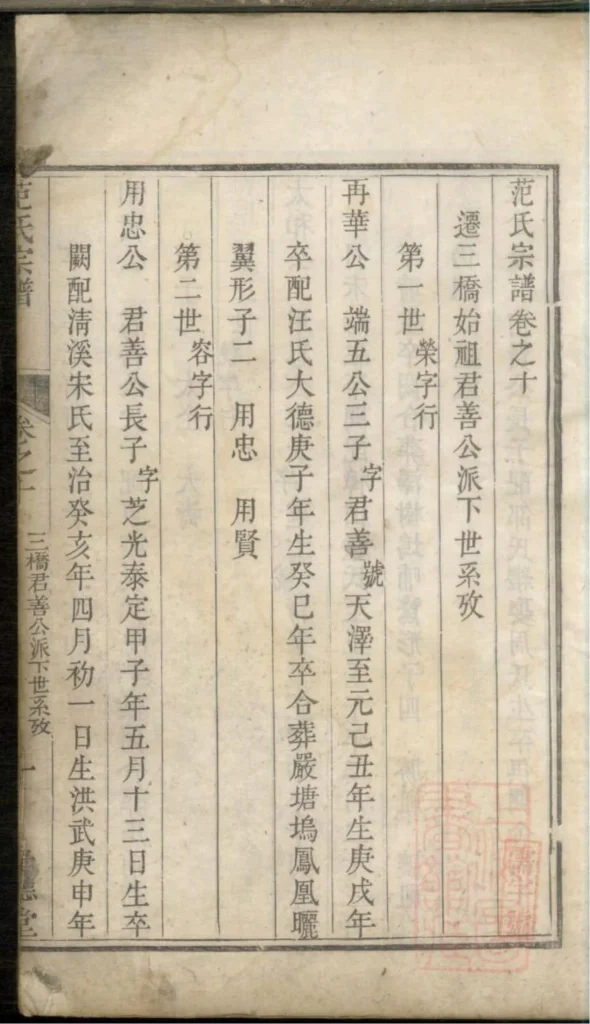 范氏宗譜卷之十
遷三橋始祖君善公派下世系攷
第一世榮字行
再華公 端五公三子字君善號天澤至元己丑年生庚戌年
卒配汪氏大德庚子年生癸巳年卒合葬嚴塘塢鳳凰曬
翼形子二 用忠 用賢
第二世容字行
用忠公 君善公長子字芝光泰定甲子年五月十三日生卒
闕配清溪宋氏至治癸亥年四月初一日生洪武庚申年
范氏宗譜 卷之十 三橋君善公派下世系攷 一 堂